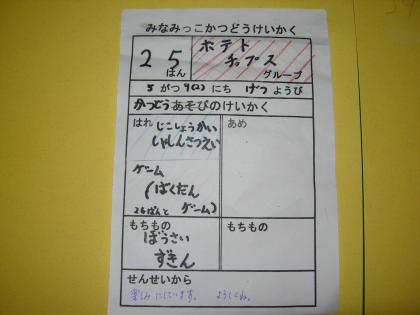 みなみっこかつどうけいかく
25はん
ポテト
チップス
グループ
5がつ9(月)にち げつようび
かつどうあそびのけいかく
はれ
じこしょうかい
しゃしんさつえい
ゲーム
(ばくだん
26ぱんと ゲーム)
あめ
もちもの
ぼうさい
ずきん
もちもの
せんせいから
楽しみにしています。 よろしくね。